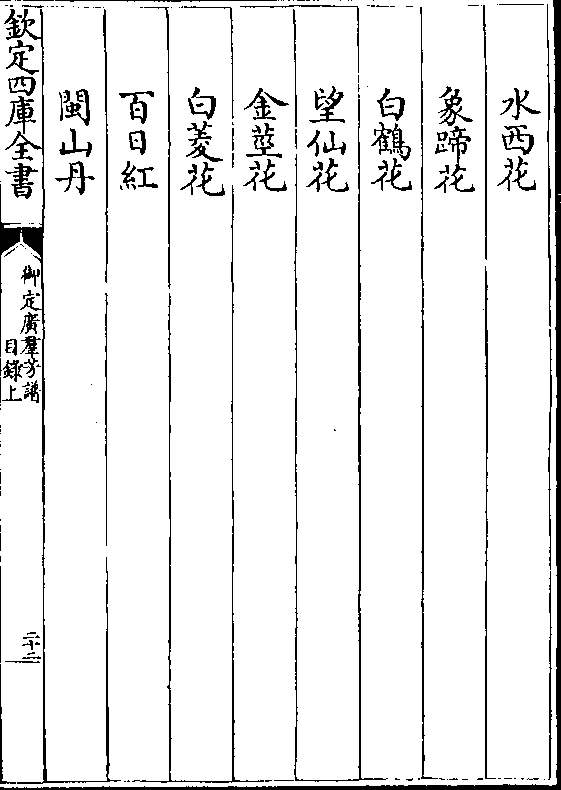 水西花
象蹄花
白鶴花
望仙花
金莖花
白菱花
百日紅
閩山丹
欽定四庫全書
御定廣羣芳譜
目錄上
二十二